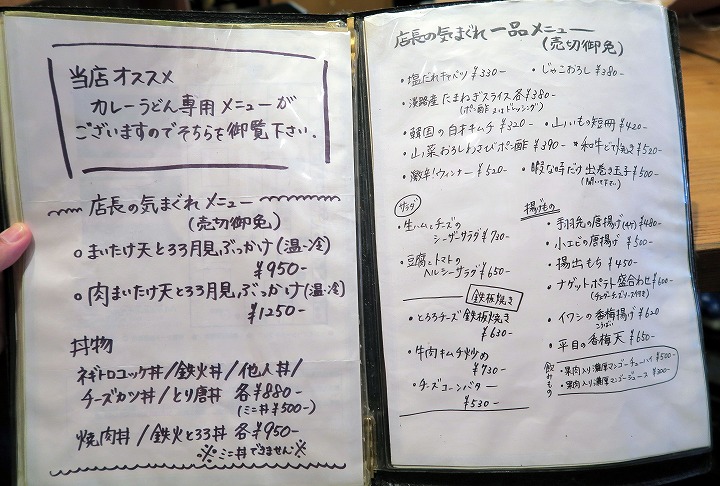 当店オススメ
カレーうどん専用メニューが
ございますのでそちらを御覧下さい.
店長の気まぐれメニュー
(売切御免)
まいたけ天とろろ月見ぶっかけ(温・冷)
¥950-
肉まいたけ天とろろ月見ぶっかけ(温・冷)
¥1250-
丼物
ネギトロユッケ丼/鉄火丼/他人丼/
チーズカツ丼/とり唐丼 各¥880-
(ミニ丼¥500-)
焼肉丼/鉄火とろろ丼 各¥950-
※ミニ丼できません※
店長の気まぐれ一品メニュー
(売切御免)
・塩だれキャベツ ¥330-
・じゃこおろし ¥380-
・淡路産たまねぎスライス 各¥380-
(ポン酢 又は ドレッシング)
・韓国の白菜キムチ ¥320-
・山いも短冊 ¥420-
・山菜おろしわさびポン酢 ¥390-
・和牛どて焼き ¥520-
・激辛!ウィンナー ¥520-
・暇な時だけ出巻き玉子 ¥500-
(聞いて下さい)
サラダ
・生ハムとチーズの
シーザーサラダ ¥730-
・豆腐とトマトの
ヘルシーサラダ ¥650-
鉄板焼き
・とろろチーズ鉄板焼き
¥630-
・牛肉キムチ炒め
¥730-
・チーズコーンバター
¥530-
揚げもの
・手羽先の唐揚げ(4ケ) ¥480-
・小エビの唐揚げ ¥500-
・揚出もち ¥450-
・ナゲットポテト盛合わせ ¥600-
(チェダーチーズソース付き)
・イワシの香梅揚げ ¥620
・平目の香梅天 ¥650-
飲みもの
・果肉入り濃厚マンゴーチューハイ ¥500-
・果肉入り濃厚マンゴージュース ¥300-